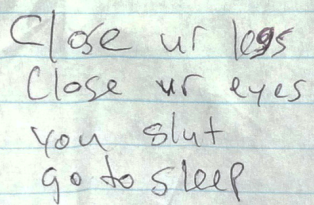 Close ur legs
Close ur eyes
you slut
go to sleep